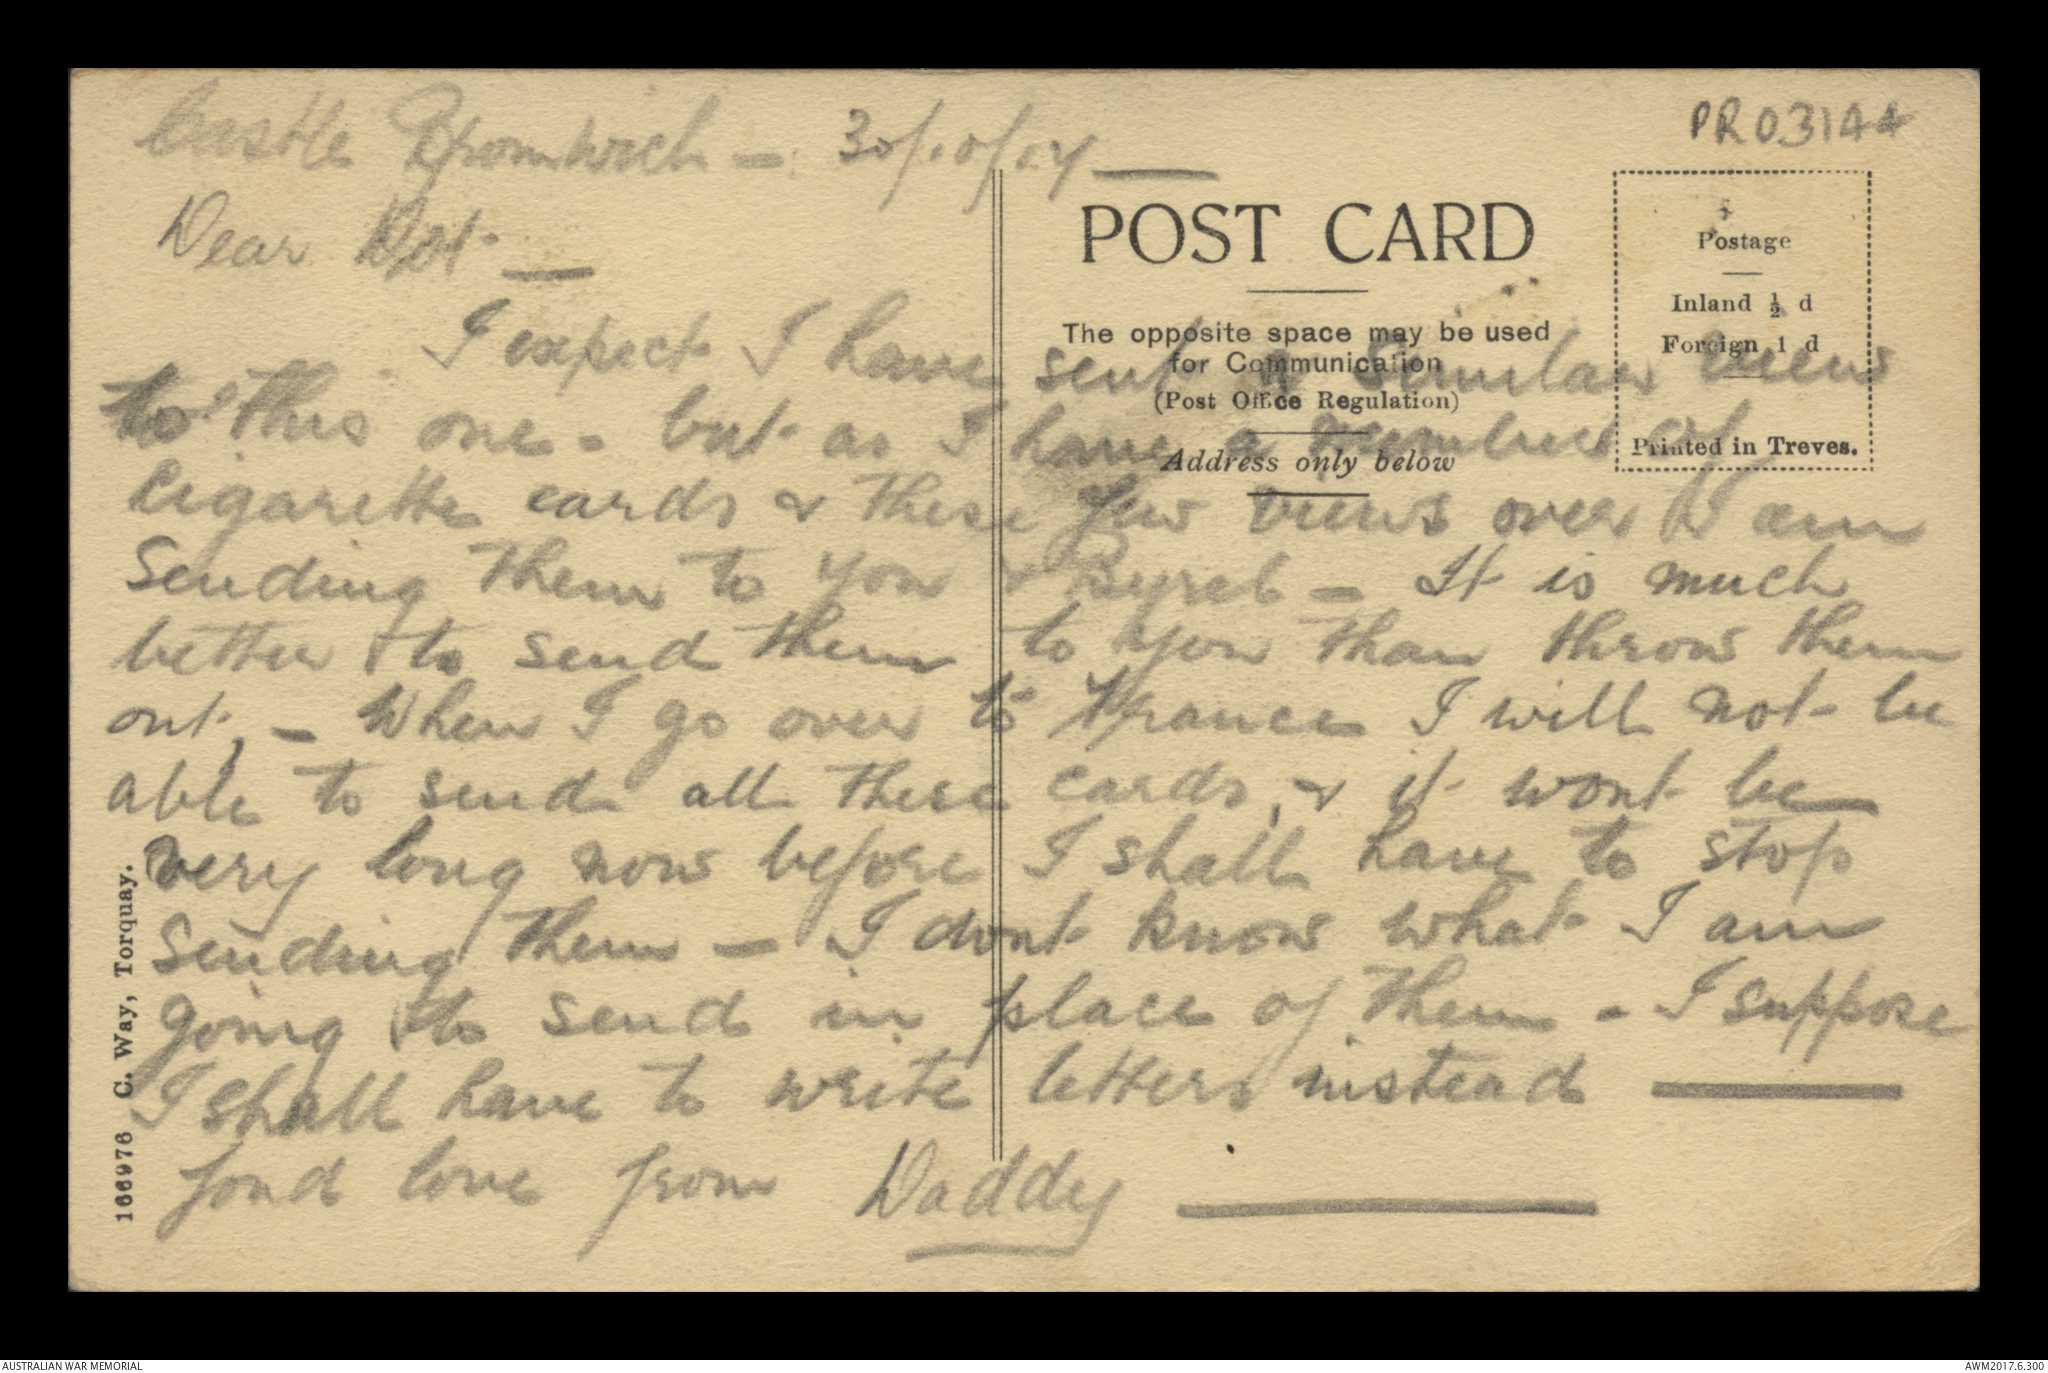 PR03144
Castle Bromwich – 30/10/17
Dear Dot –
POST CARD
The opposite space may be used
for Communication
(Post Office Regulation)
Address only below
Postage
Inland ½ d
Foreign 1 d
Printed in Treves.
I expect I have sent a similar views
to this one - but as I have a number of
Cigarette cards & these few views over I am
Sending them to you & Byrel – It is much
better to send them to you than throw them
out, – When I go over to France I will not be
able to send all these cards, & it wont be
very long now before I shall have to stop
Sending them – I dont know what I am
going to send in place of them - I suppose
I shall have to write letters instead
fond love from Daddy
166976 C. Way, Torquay.
AUSTRALIAN WAR MEMORIAL
AWM2017.6.300